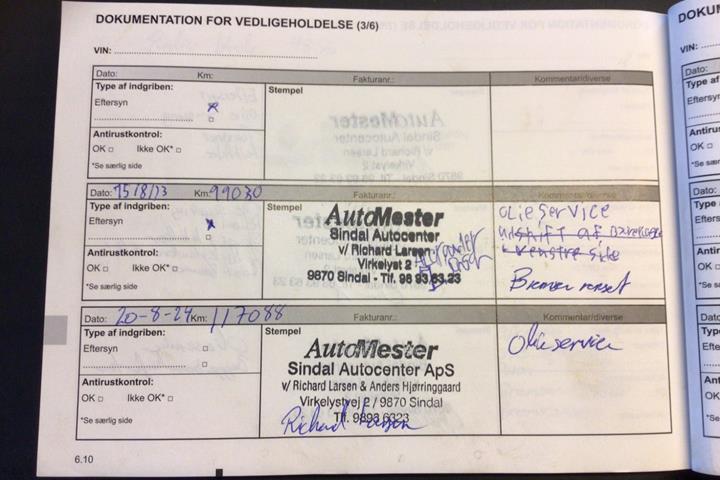 DOKUMENTATION FOR VEDLIGEHOLDELSE (3/6)
VIN:
Dato: Km: Fakturanr.: Kommentar/diverse
Type af indgriben:
Eftersyn x
Antirustkontrol:
OK □ Ikke OK* □
*Se særlig side
Stempel
Dato: 15/8/13 Km: 99030 Fakturanr.: Kommentar/diverse
Type af indgriben:
Eftersyn x
□
Antirustkontrol:
OK □ Ikke OK* □
*Se særlig side
Stempel
AutoMester
Sindal Autocenter
v/ Richard Larsen
Virkelyst 2
9870 Sindal - Tlf. 98 93.63.23
OLIESERVICE
udskift af
venstre side
Bremser renset
Dato: 20-8-24 Km: 117088 Fakturanr.: Kommentar/diverse
Type af indgriben:
Eftersyn □
□
Antirustkontrol:
OK □ Ikke OK* □
*Se særlig side
Stempel
AutoMester
Sindal Autocenter ApS
v/ Richard Larsen & Anders Hjørringgaard
Virkelystvej 2 / 9870 Sindal
Tlf. 9893 6323
Richard Larsen
Olieservice
6.10
VIN:
Dato:
Type
Efte
Anti
OK □
*Se
Dato:
Type
Efte
Anti
OK
*Se
Dato:
Type
Efte
Anti
OK
*Se